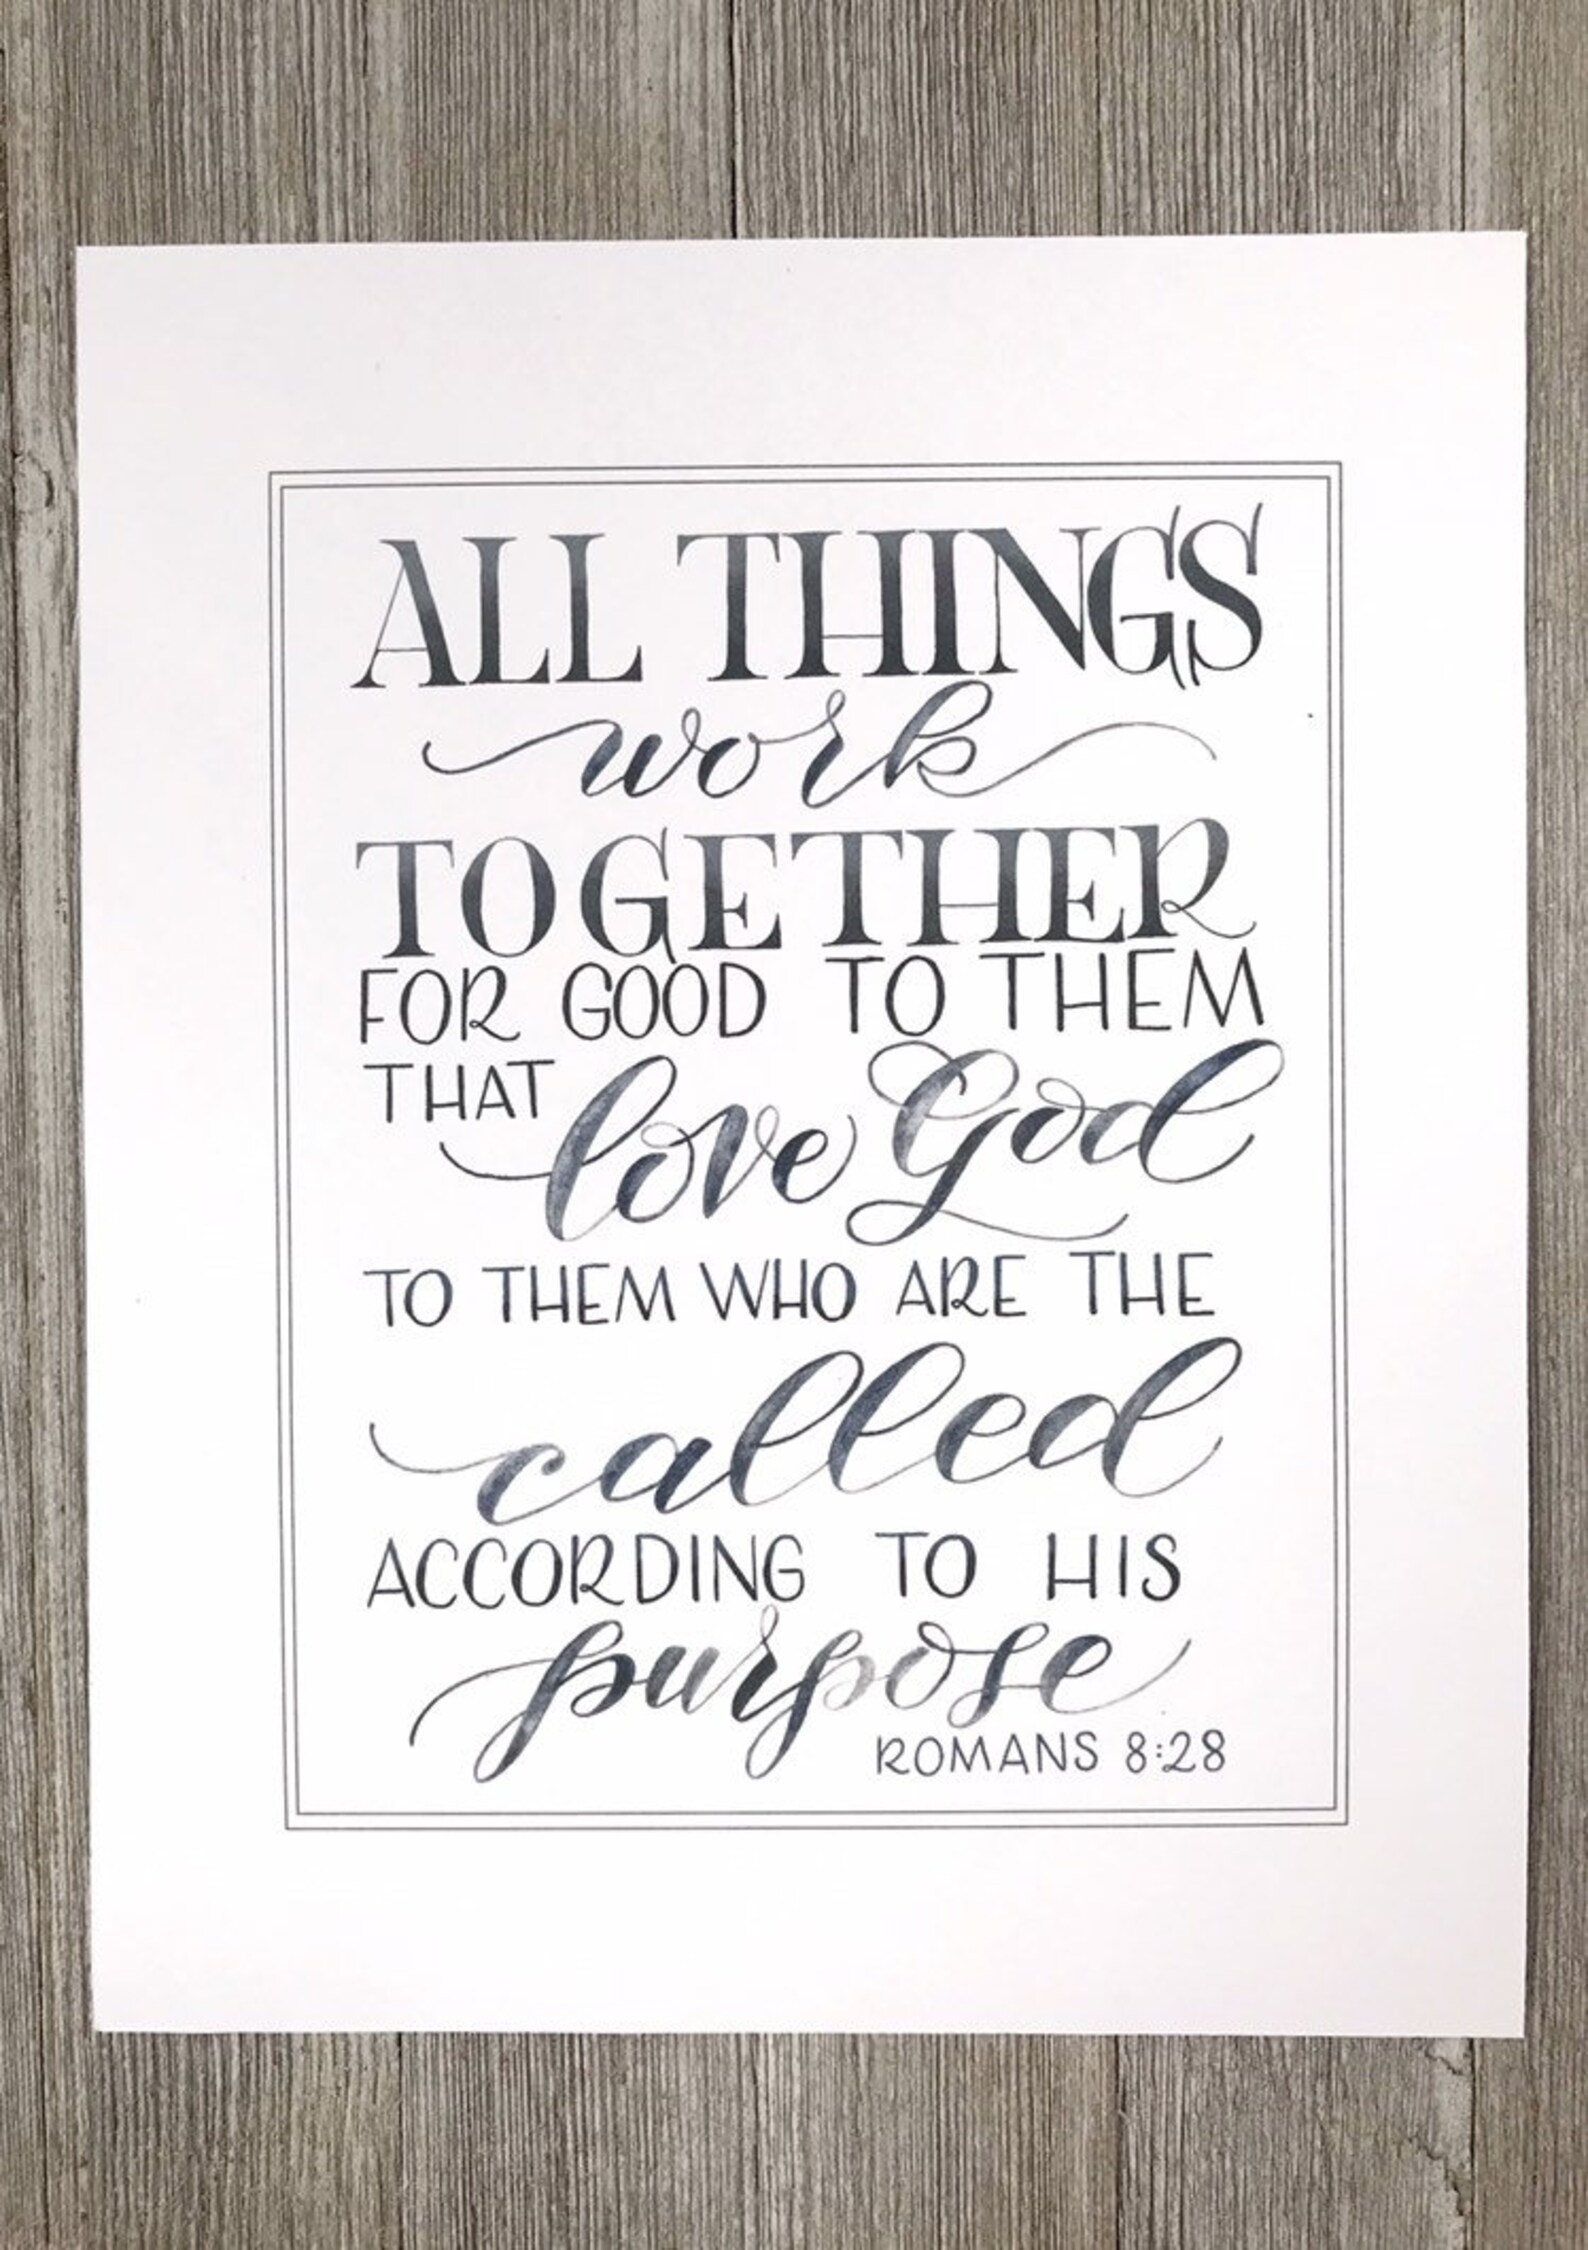 ALL THINGS
work
TOGETHER
FOR GOOD TO THEM
THAT love God
TO THEM WHO ARE THE
called
ACCORDING TO HIS
purpose
ROMANS 8:28